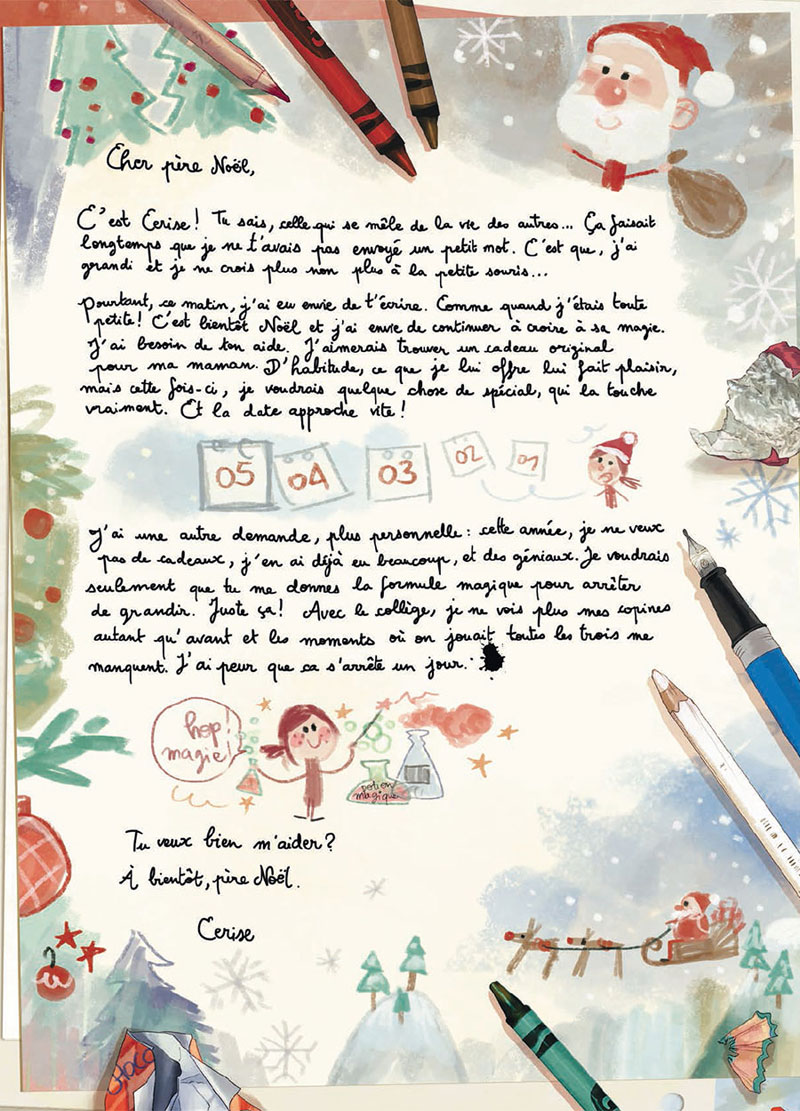 Cher père Noël,
C'est Cerise! Tu sais, celle qui se mêle de la vie des autres... Ça faisait
longtemps que je ne t'avais pas envoyé un petit mot. C'est que, j'ai
grandi et je ne crois plus non plus à la petite souris...
Pourtant, ce matin, j'ai eu envie de t'écrire. Comme quand j'étais toute
petite! C'est bientôt Noël et j'ai envie de continuer à croire à sa magie.
J'ai besoin de ton aide. J'aimerais trouver un cadeau original
pour ma maman. D'habitude, ce que je lui offre lui fait plaisir,
mais cette fois-ci, je voudrais quelque chose de spécial, qui la touche
vraiment. Et la date approche vite!
05 04 03 02 01
J'ai une autre demande, plus personnelle: cette année, je ne veux
pas de cadeaux, j'en ai déjà eu beaucoup, et des géniaux. Je voudrais
seulement que tu me donnes la formule magique pour arrêter
de grandir. Juste ça! Avec le collège, je ne vois plus mes copines
autant qu'avant et les moments où on jouait toutes les trois me
manquent. J'ai peur que ca s'arrête un jour.
hop!
magie!
potion
magique
Tu veux bien m'aider?
À bientôt, père Noël.
Cerise